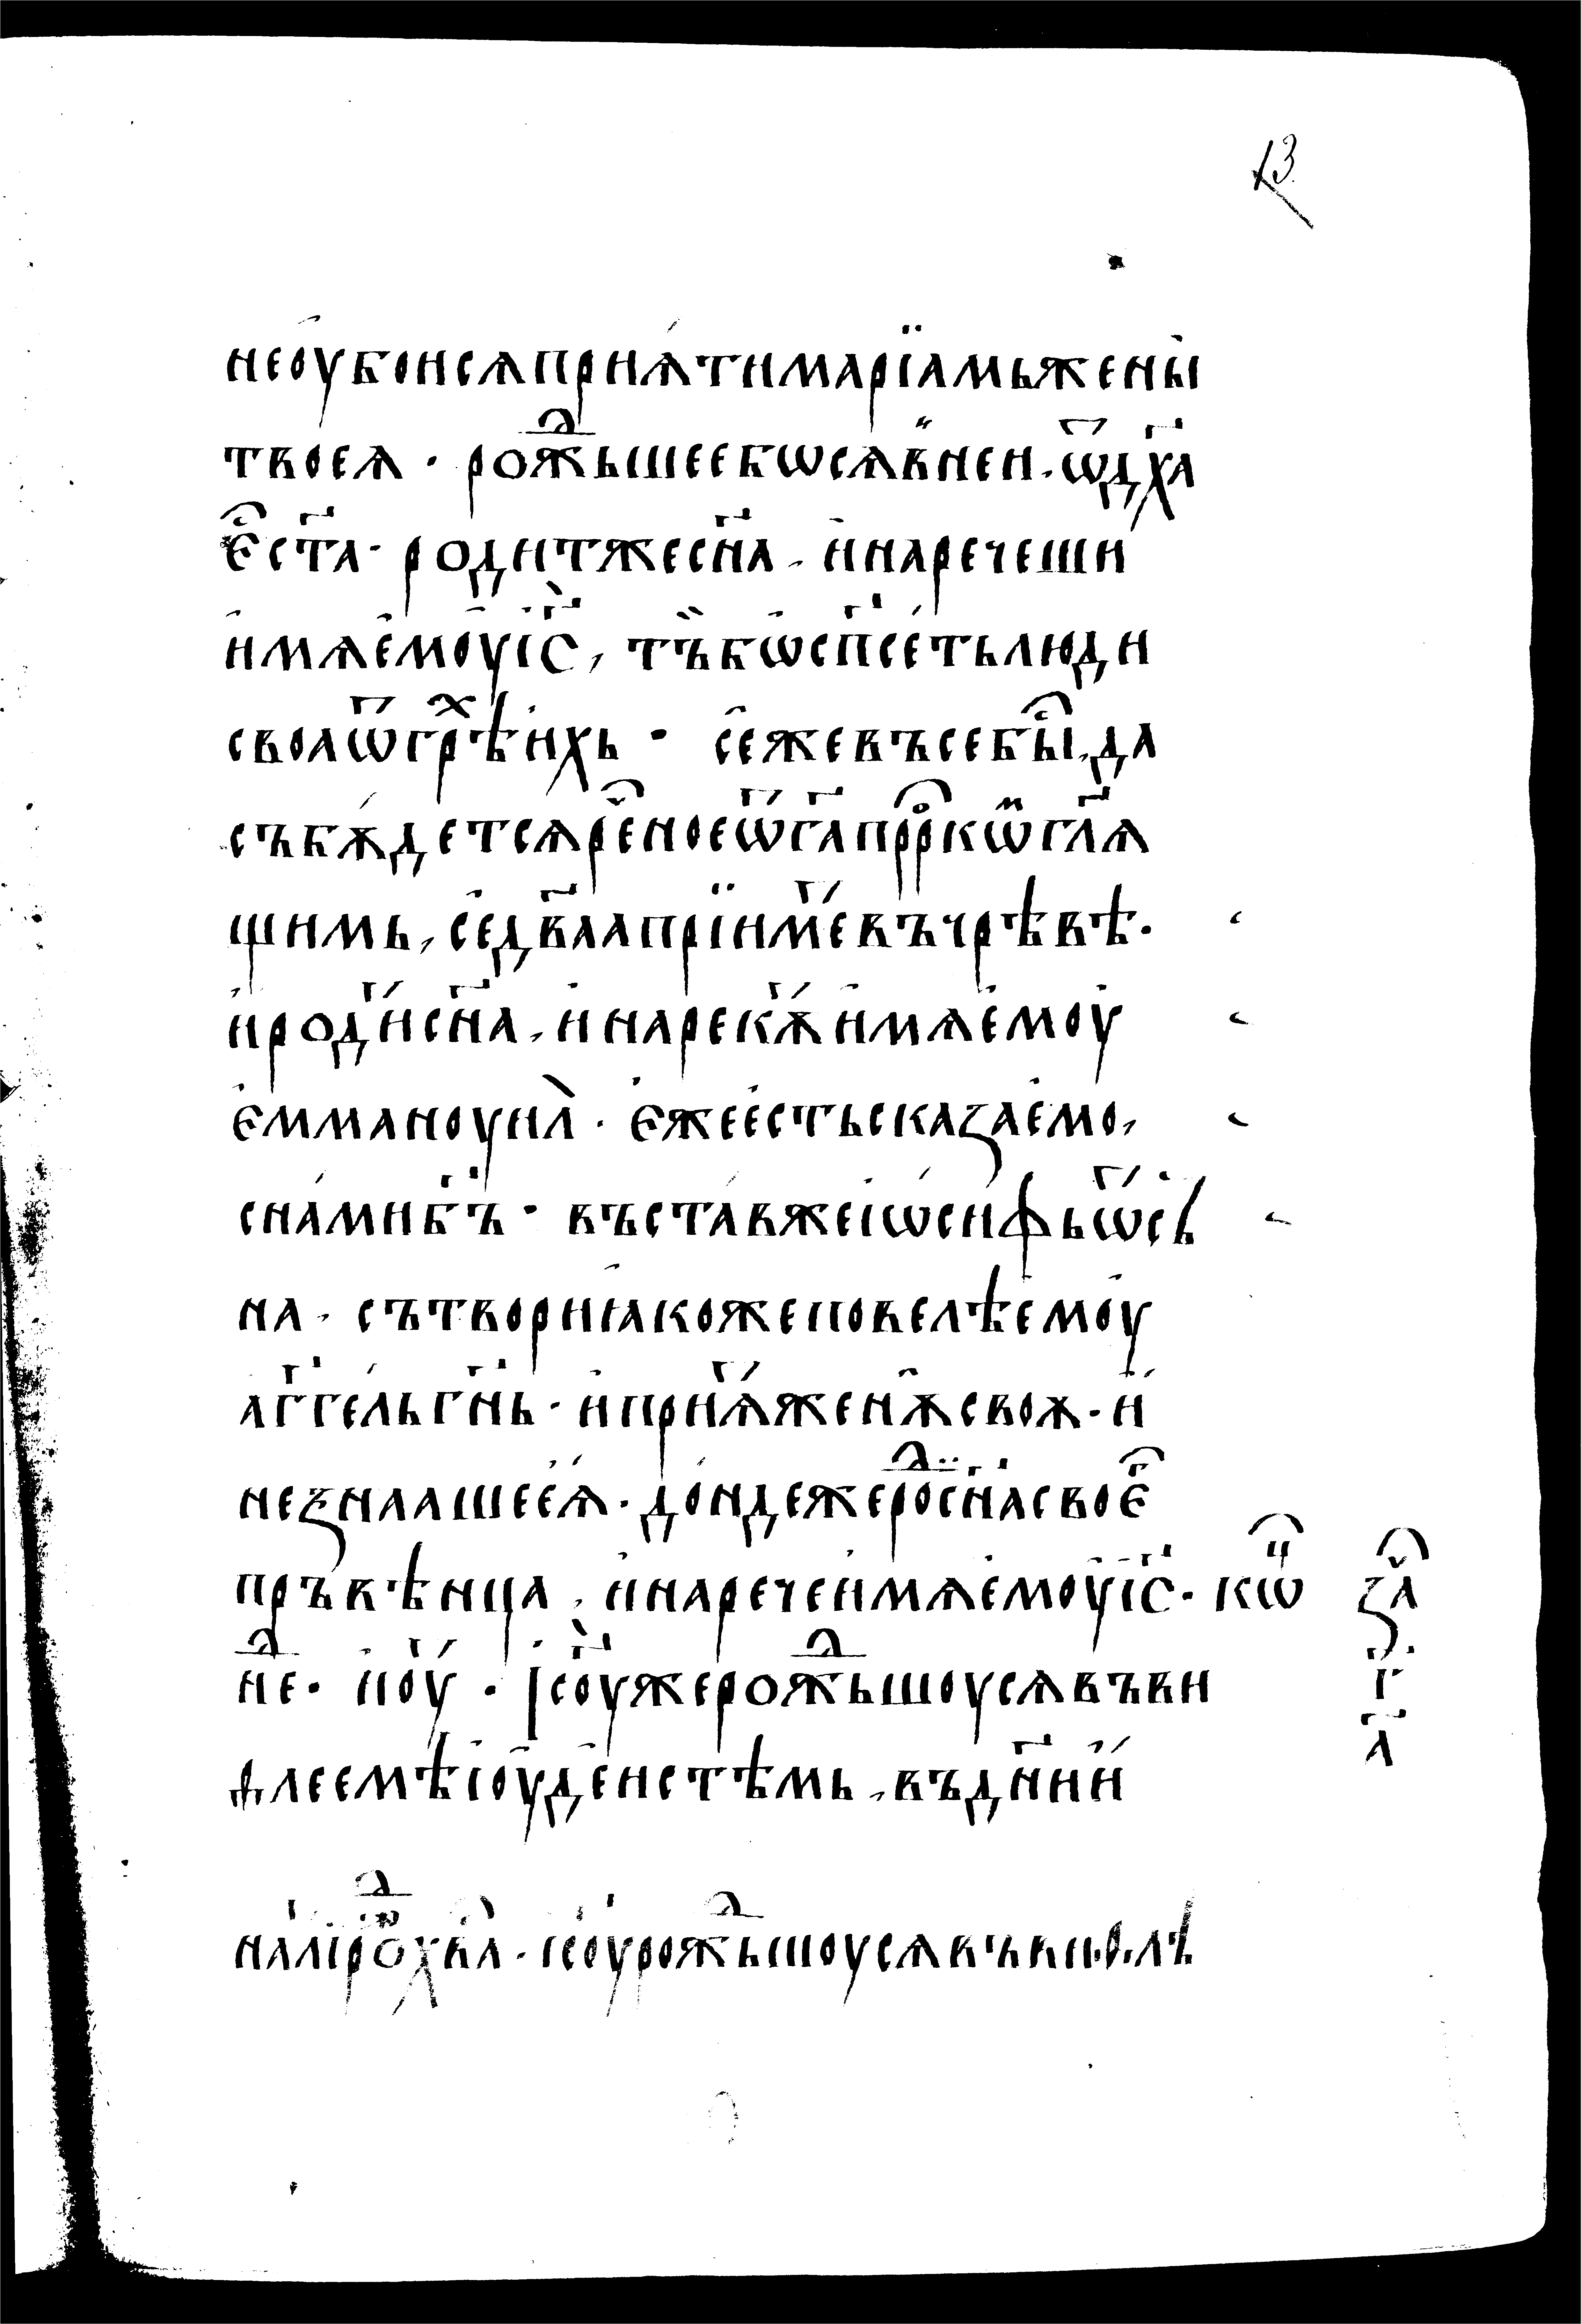 13
неоубоисѧприѧ́тимарїамьжены̀
твоеѧ · рожⷣьшеебѡсѧвⸯнеи · ѿдх҃а
є҆сⷭт҃а · родитжесн҃а · и҆наречеши
и҆мѧе҆моу҆і҆с҃ , тъ́бѡ҆сп҃се́тьлюди
своаѿгрⷯѣ́ихь · се҆жевъсебыⷭ҇ , да
събѫ́детсѧреⷱ҇ноеѿг҃апрⷪ҇ркѡⷨ҇гл҃ѧ
щимь , се҆дв҃аапрїимⷮ҇евъчрѣвѣ ·
и҆родⷮ҇исн҃а , и҆нарекⷮ҇ѫ́и҆мѧе҆моу
є҆мманоуил̀ · є҆жее҆стьсказае҆мо ,
сна́мибг҃ъ · въста́вжеі҆ѡ́сифьѿсъ
на , сътвориꙗ҆коженовелѣе҆моу
а҆г҃ге́льгн҃ь · и҆приⷮ҇ѧ́жени҆ѫсвоѫ · и҆
незнаашее҆ѧ́ · до́ндежероⷣсн҃асвоеⷢ҇
пръвѣнца , и҆наречеи҆мѧе҆моуі҆с҃ · кѡⷰ҇ заⷱ҇
неⷣ · поⷮ҇у · і҆с҃оужерожⷣьшоусѧвъви г
ѳлеемѣі҆оуде҆истѣмь , въдн҃ии҆ а҃
налірⷤ҇охв҃а · і҆соурожⷣьшоусѧвъви.ѳ.лѣ